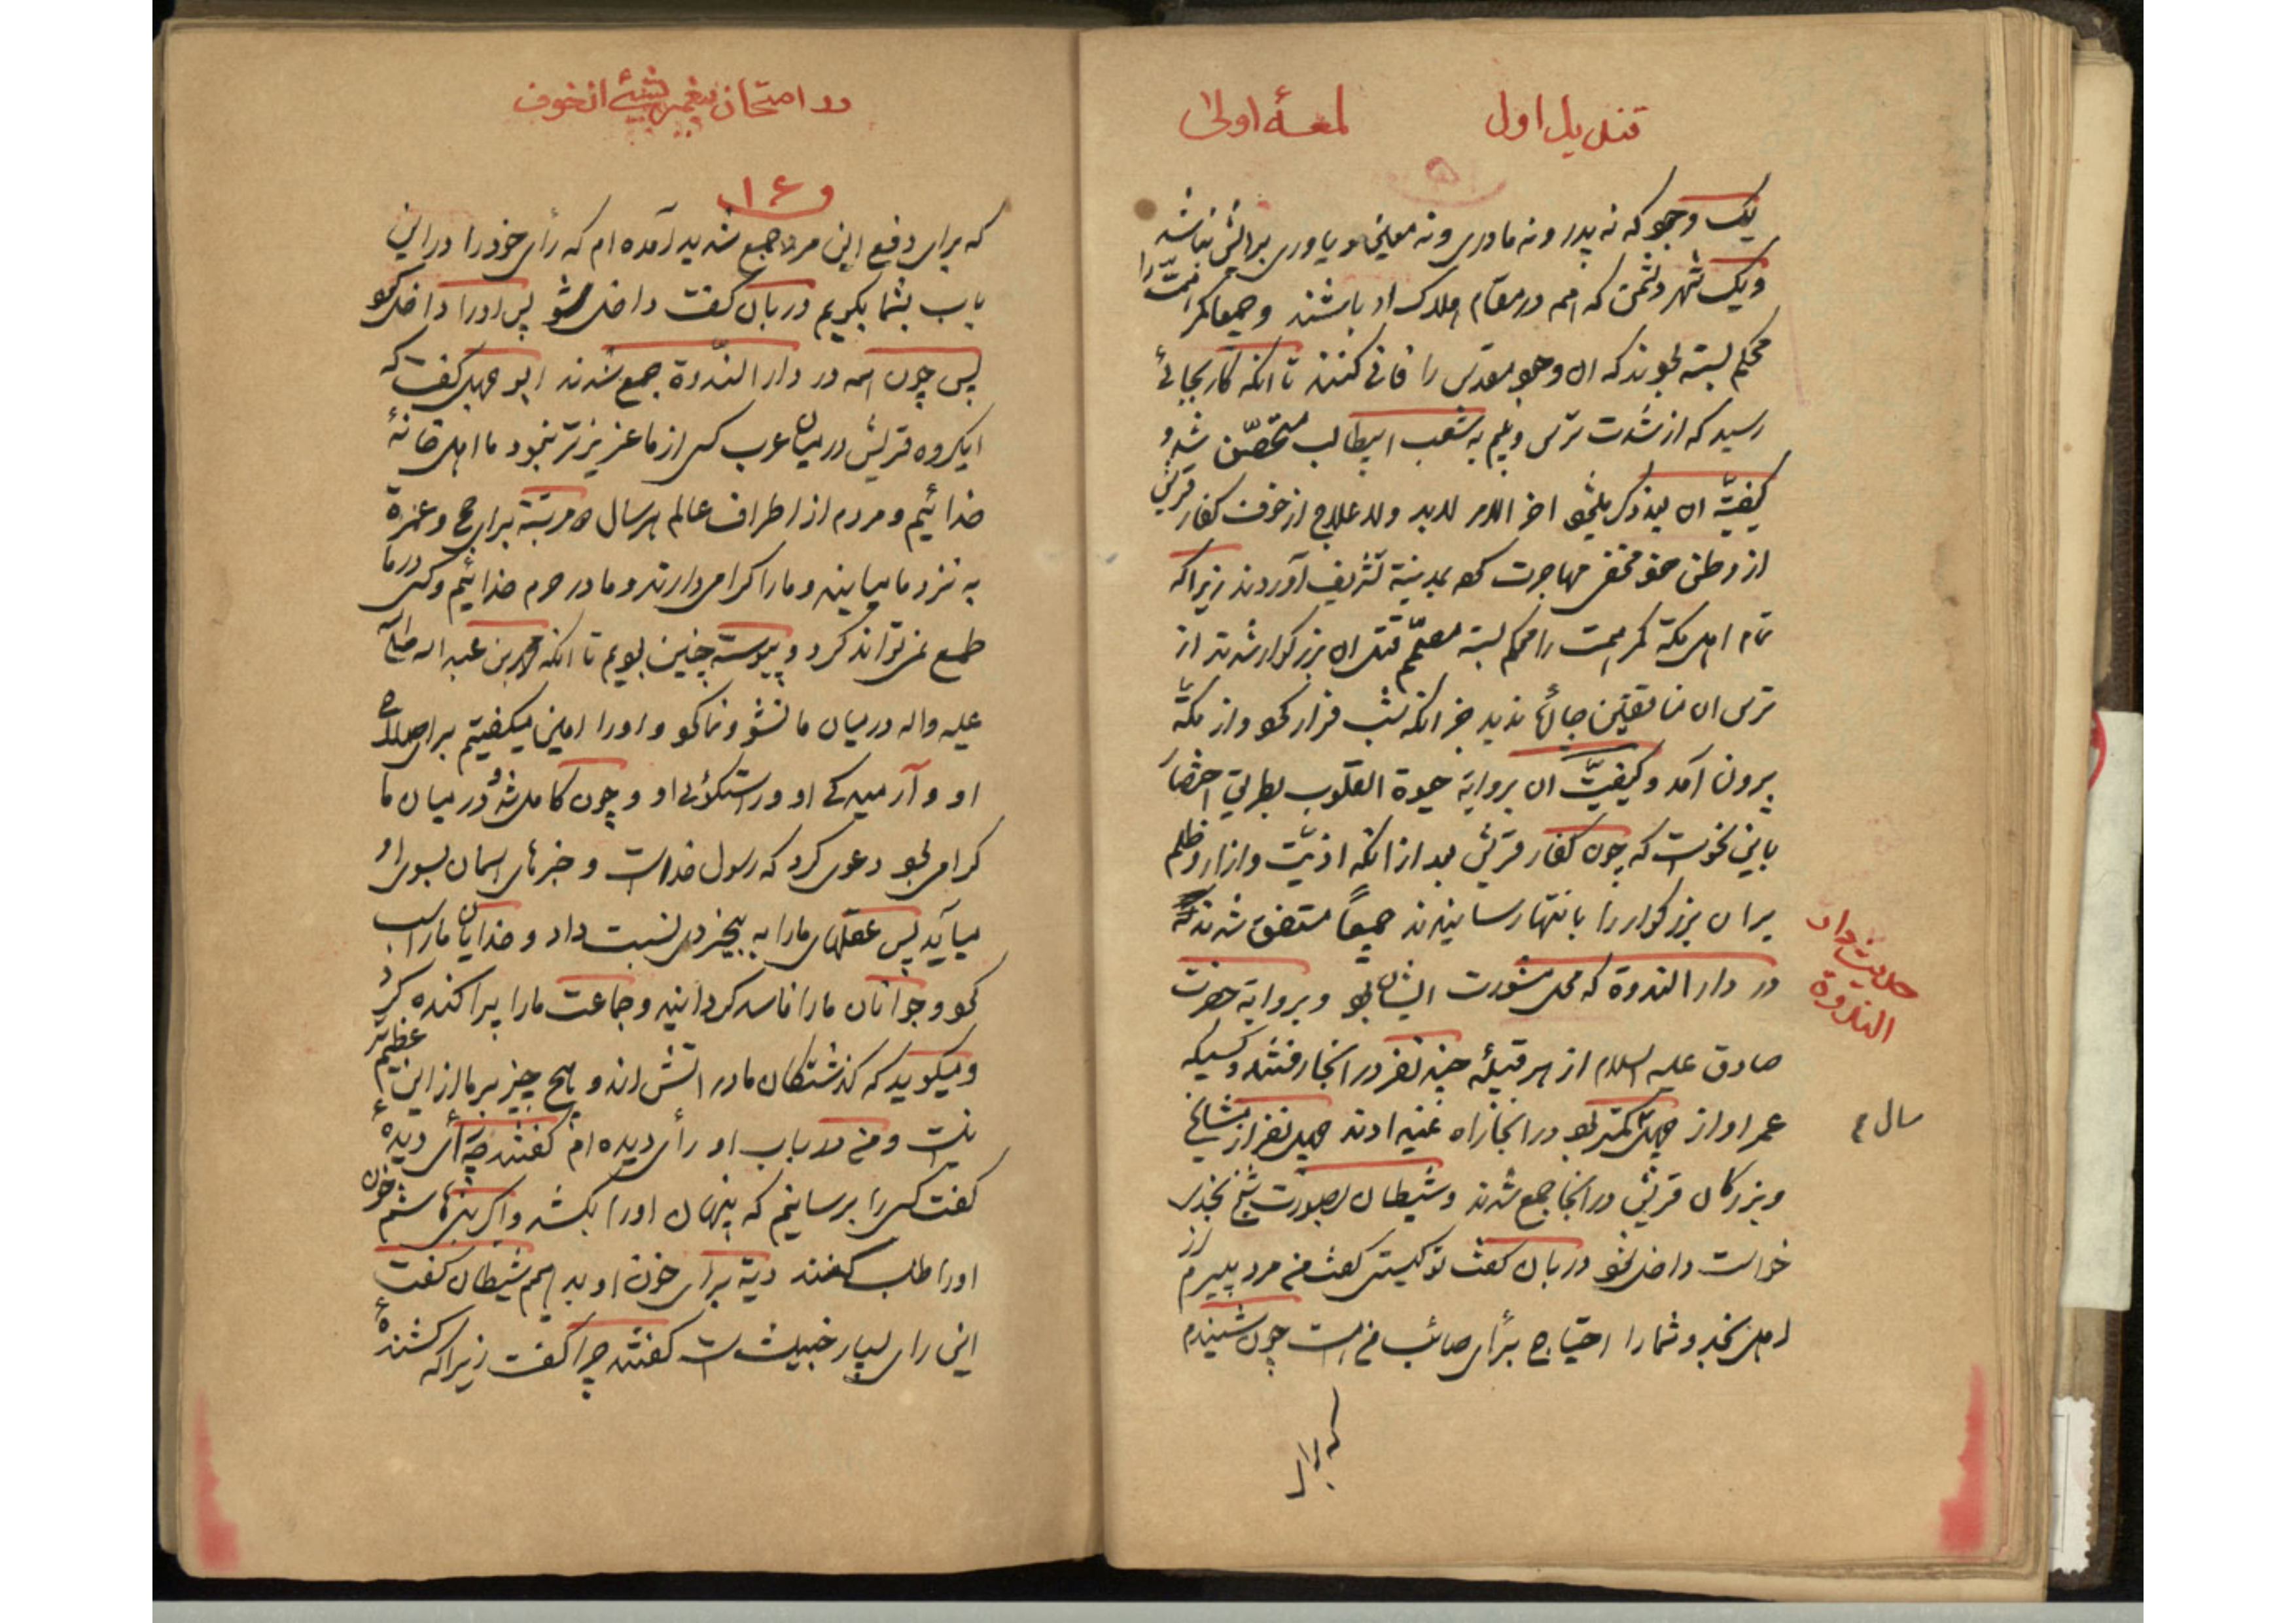 قندیل اول
لمعۀ اولی
یک وجود که نه پدر و نه مادری و نه معینی و یاوری برایش نباشد
و یک شهر دشمن که همه در مقام هلاک او باشند و جمیعا کمر همت را
محکم بسته بودند که ان وجود مقدس را فانی کنند تا انکه کار بجائی
رسید که از شدت ترس و بیم به شعب ابیطالب متحصّن شد و
کیفیّة ان اخر الامر لابد و لا علاج از خوف کفار قریش
از وطن خود مخفی مهاجرت کرد بمدینة تشریف آوردند زیراکه
تمام اهل مکّة کمر همت را محکم بسته مصمّم قتل ان بزرگوار شدند از
ترس ان منافقین جائی ندید جز انکه شب فرار کرد و از مکّه
بیرون آمد و کیفیّت ان بروایة حیوة القلوب بطریق اختصار
باین نحو است که چون کفار قریش بعد از انکه اذیّت و ازار و ظلم
بر ان بزرگوار را بانتها رسانیدند جمیعاً متفق شدند که
در دار الندوة که محل مشورت ایشان بود و بروایة حضرت
حدیث دار
الندوة
صادق علیه السلام از هر قبیلۀ چند نفر در انجا رفتند و کسیکه
عمر او از چهل کمتر بود در انجا راه نمیدادند چهل نفر از مشایخ
سال ۴
و بزرگان قریش در انجا جمع شدند و شیطان بصورت شیخ نجدی
خواست داخل شود دربان گفت تو کیستی گفت من مرد پیرم از
اهل نجد و شما را احتیاج برأی صائب من است چون شنیدم
که برای
در امتحان پیغمبر بشیئ از خوف
و ۱۶
که برای دفع این مرد جمع شدید آمده ام که رأی خود را در این
باب بشما بگویم دربان گفت داخل شو پس او را داخل کرد
پس چون همه در دار النّدوة جمع شدند ابو جهل گفت که
ایگروه قریش در میان عرب کسی از ما عزیزتر نبود ما اهل خانۀ
خدائیم و مردم از اطراف عالم هر سال دو مرتبة برای حج و عمرة
به نزد ما میایند و ما را اکرام میدارند و ما در حرم خدائیم و کسی در ما
طمع نمیتواند کرد و پیوسته چنین بودیم تا انکه محمد بن عبد الله صلی الله
علیه و اله در میان ما نشو و نما کرد و او را امین میگفتیم برای صلاح
او و آرمیدگی او و راستگوئی او و چون کامل شد و در میان ما
گرامی بود دعوی کرد که رسول خداست و خبرهای اسمان بسوی او
میآید پس عقلهای ما را به بیخردی نسبت داد و خدایان ما را سب
کرد و جوانان ما را فاسد گردانید و جماعت ما را پراکنده کرد
و میگوید که گذشتگان ما در اتش اند و هیچ چیز بر ما از این عظیم تر
نیست و من در باب او رأی دیده ام گفتند چه رأی دیدۀ
گفت کسی را برسانیم که پنهان او را بکشد و اگر بنی هاشم خون
او را طلب کنند دیة برای خون او بدهیم شیطان گفت
این رای بسیار خبیث است گفتند چرا گفت زیراکه کشندۀ